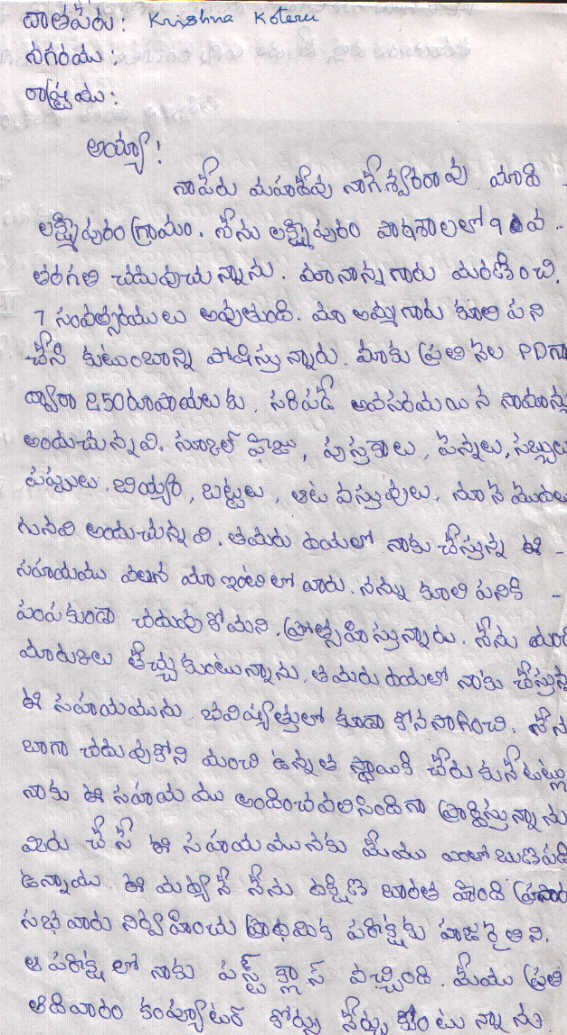 దాతపేరు: Krishna Koteru
నగరము:
రాష్ట్రము:
అయ్యా!
నాపేరు మహాదేవు నాగేశ్వరరావు మాది -
లక్ష్మీపురం గ్రామం. నేను లక్ష్మీపురం పాఠశాలలో 9 వ -
తరగతి చదువుచున్నాను. మా నాన్నగారు మరణించి.
7 సంవత్సరములు అవుతుంది. మా అమ్మగారు కూలి పని
చేసి కుటుంబాన్ని పోషిస్తున్నారు. మాకు ప్రతి నెల PDగా
ద్వారా 250రూపాయలకు. సరిపడే అవసరమయిన సామాన్లు
అందుచున్నవి. స్కూల్ ఫీజు, పుస్తకాలు, పెన్నులు, సబ్బులు
పప్పులు. బియ్యం, బట్టలు, ఆట వస్తువులు. నూనె మొదల
గునవి అందుచున్నవి. తమరు దయతో నాకు చేస్తున్న ఈ -
సహాయము వలన మా ఇంటిలో వారు. నన్ను కూలి పనికి -
పంపకుండా చదువుకోమని. ప్రోత్సహిస్తున్నారు. నేను మంచి
మార్కులు తెచ్చుకుంటున్నాను. తమరు దయతో నాకు చేస్తున్న
ఈ సహాయమును భవిష్యత్తులో కూడా కొనసాగించి. నేను
బాగా చదువుకొని మంచి ఉన్నత స్థాయికి చేరుకునేటట్లు
నాకు ఈ సహాయము అందించవలసిందిగా ప్రార్థిస్తున్నాను
మీరు చేసే ఈ సహాయమునకు మేము ఎంతో ఋణపడి
ఉన్నాము. ఈ మధ్యనే నేను దక్షిణ భారత హింది ప్రచార
సభ వారు నిర్వహించు ప్రాథమిక పరీక్షకు హాజరైతిని.
ఆ పరీక్షలో నాకు ఫస్ట్ క్లాస్ వచ్చింది. మేము ప్రతి
ఆదివారం కంప్యూటర్ కోర్సు నేర్చుకుంటున్నాను